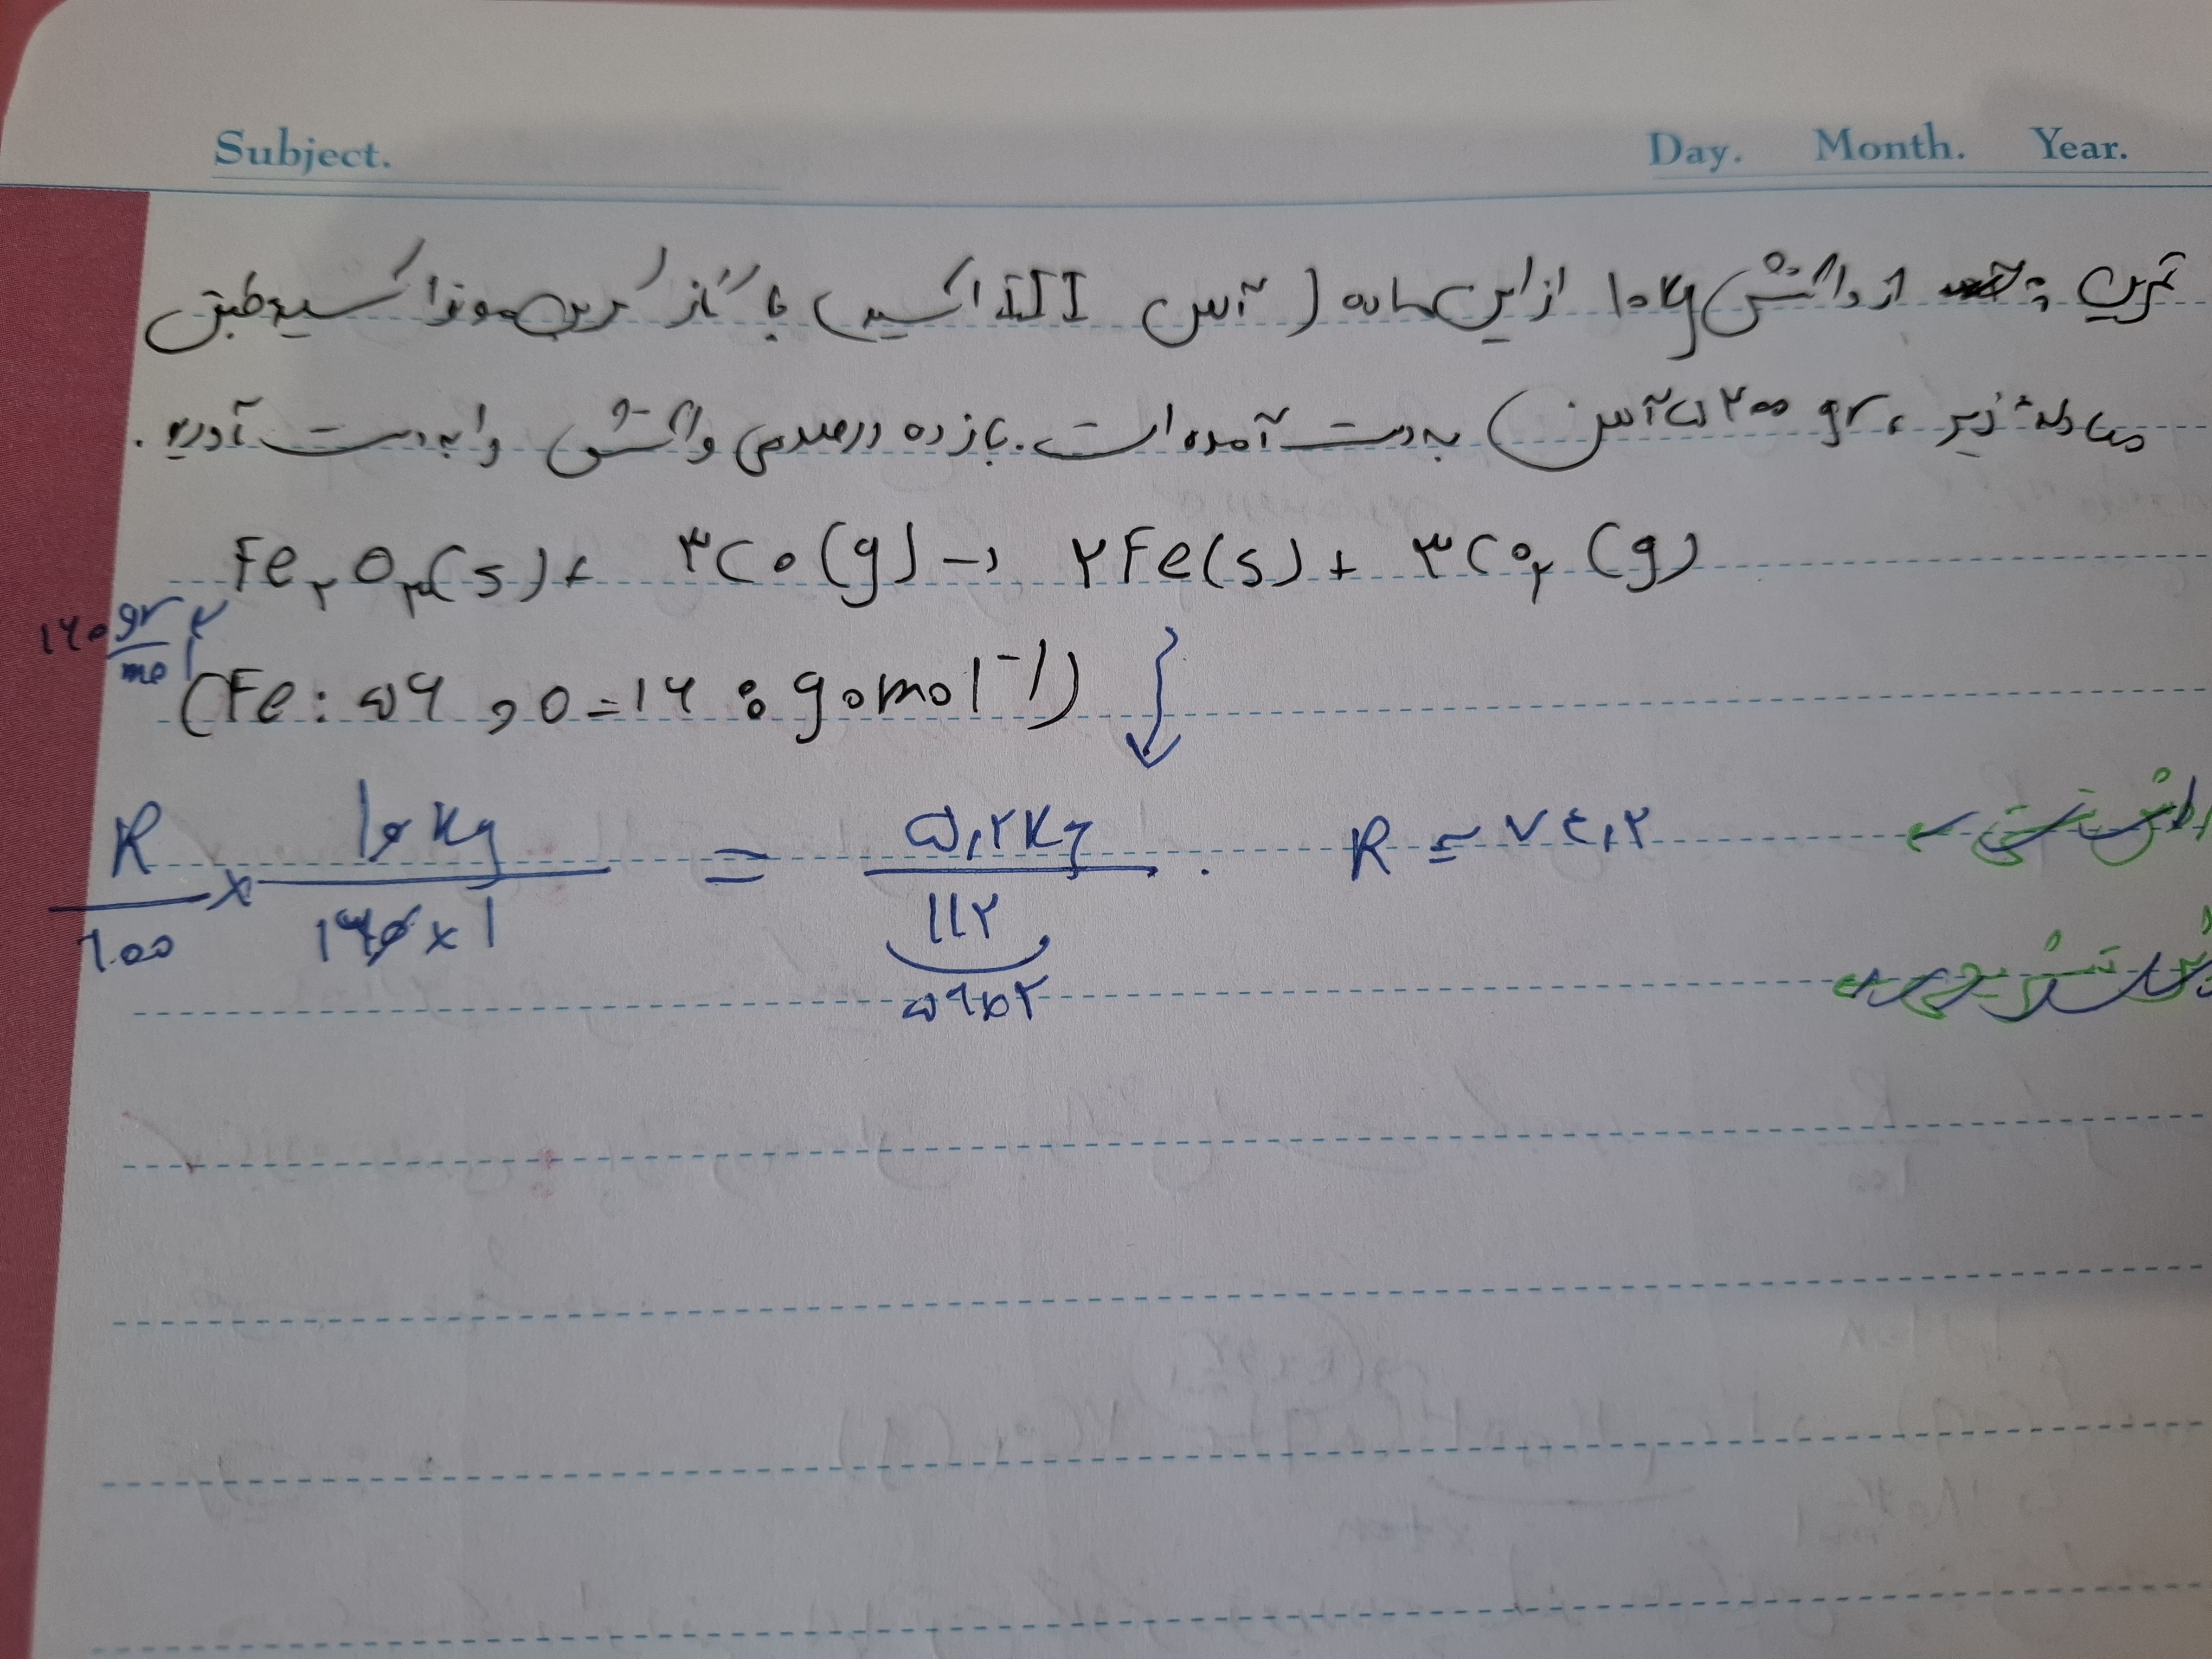 Subject.
Day. Month. Year.
تمرین: از واکنش ۱۰kg از این ماده (آهن III اکسید) با گاز کربن مونواکسید طبق
معادله زیر، ۵۲۰۰ gr آهن) به دست آمده است. بازده درصدی واکنش را به دست آورید.
Fe₂O₃(s) + ۳CO(g) → ۲Fe(s) + ۳CO₂(g)
۱۶۰ gr/mol
(Fe: ۵۶ , O = ۱۶ : g.mol⁻¹)
R/۱۰۰ × ۱۰ kg/۱۶۰×۱ = ۵,۲kg/۱۱۲ . R = ۷۴,۲
۵۶×۲